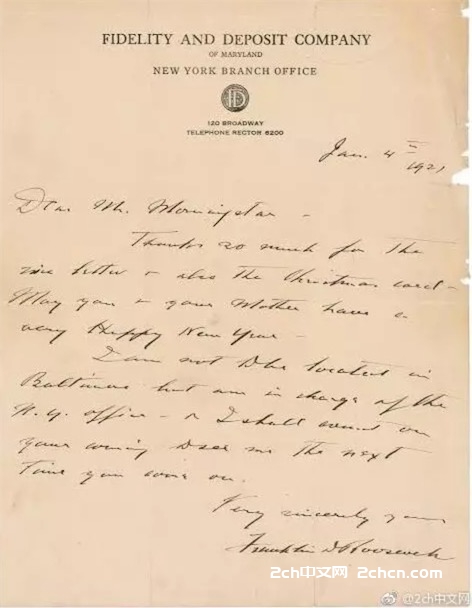 FIDELITY AND DEPOSIT COMPANY
OF MARYLAND
NEW YORK BRANCH OFFICE
FD
120 BROADWAY
TELEPHONE RECTOR 6200
Jan. 4th
1921
Dear Mr. Morningstar -
Thanks so much for the
nice letter & also the Christmas card -
May you & your Mother have a
very Happy New Year -
I am not to be located in
Baltimore but am in charge of the
N.Y. office - & I shall count on
your coming to see me the next
time you come on.
Very sincerely yours
Franklin D Roosevelt
2ch中文网 2chcn.com
@2ch中文网